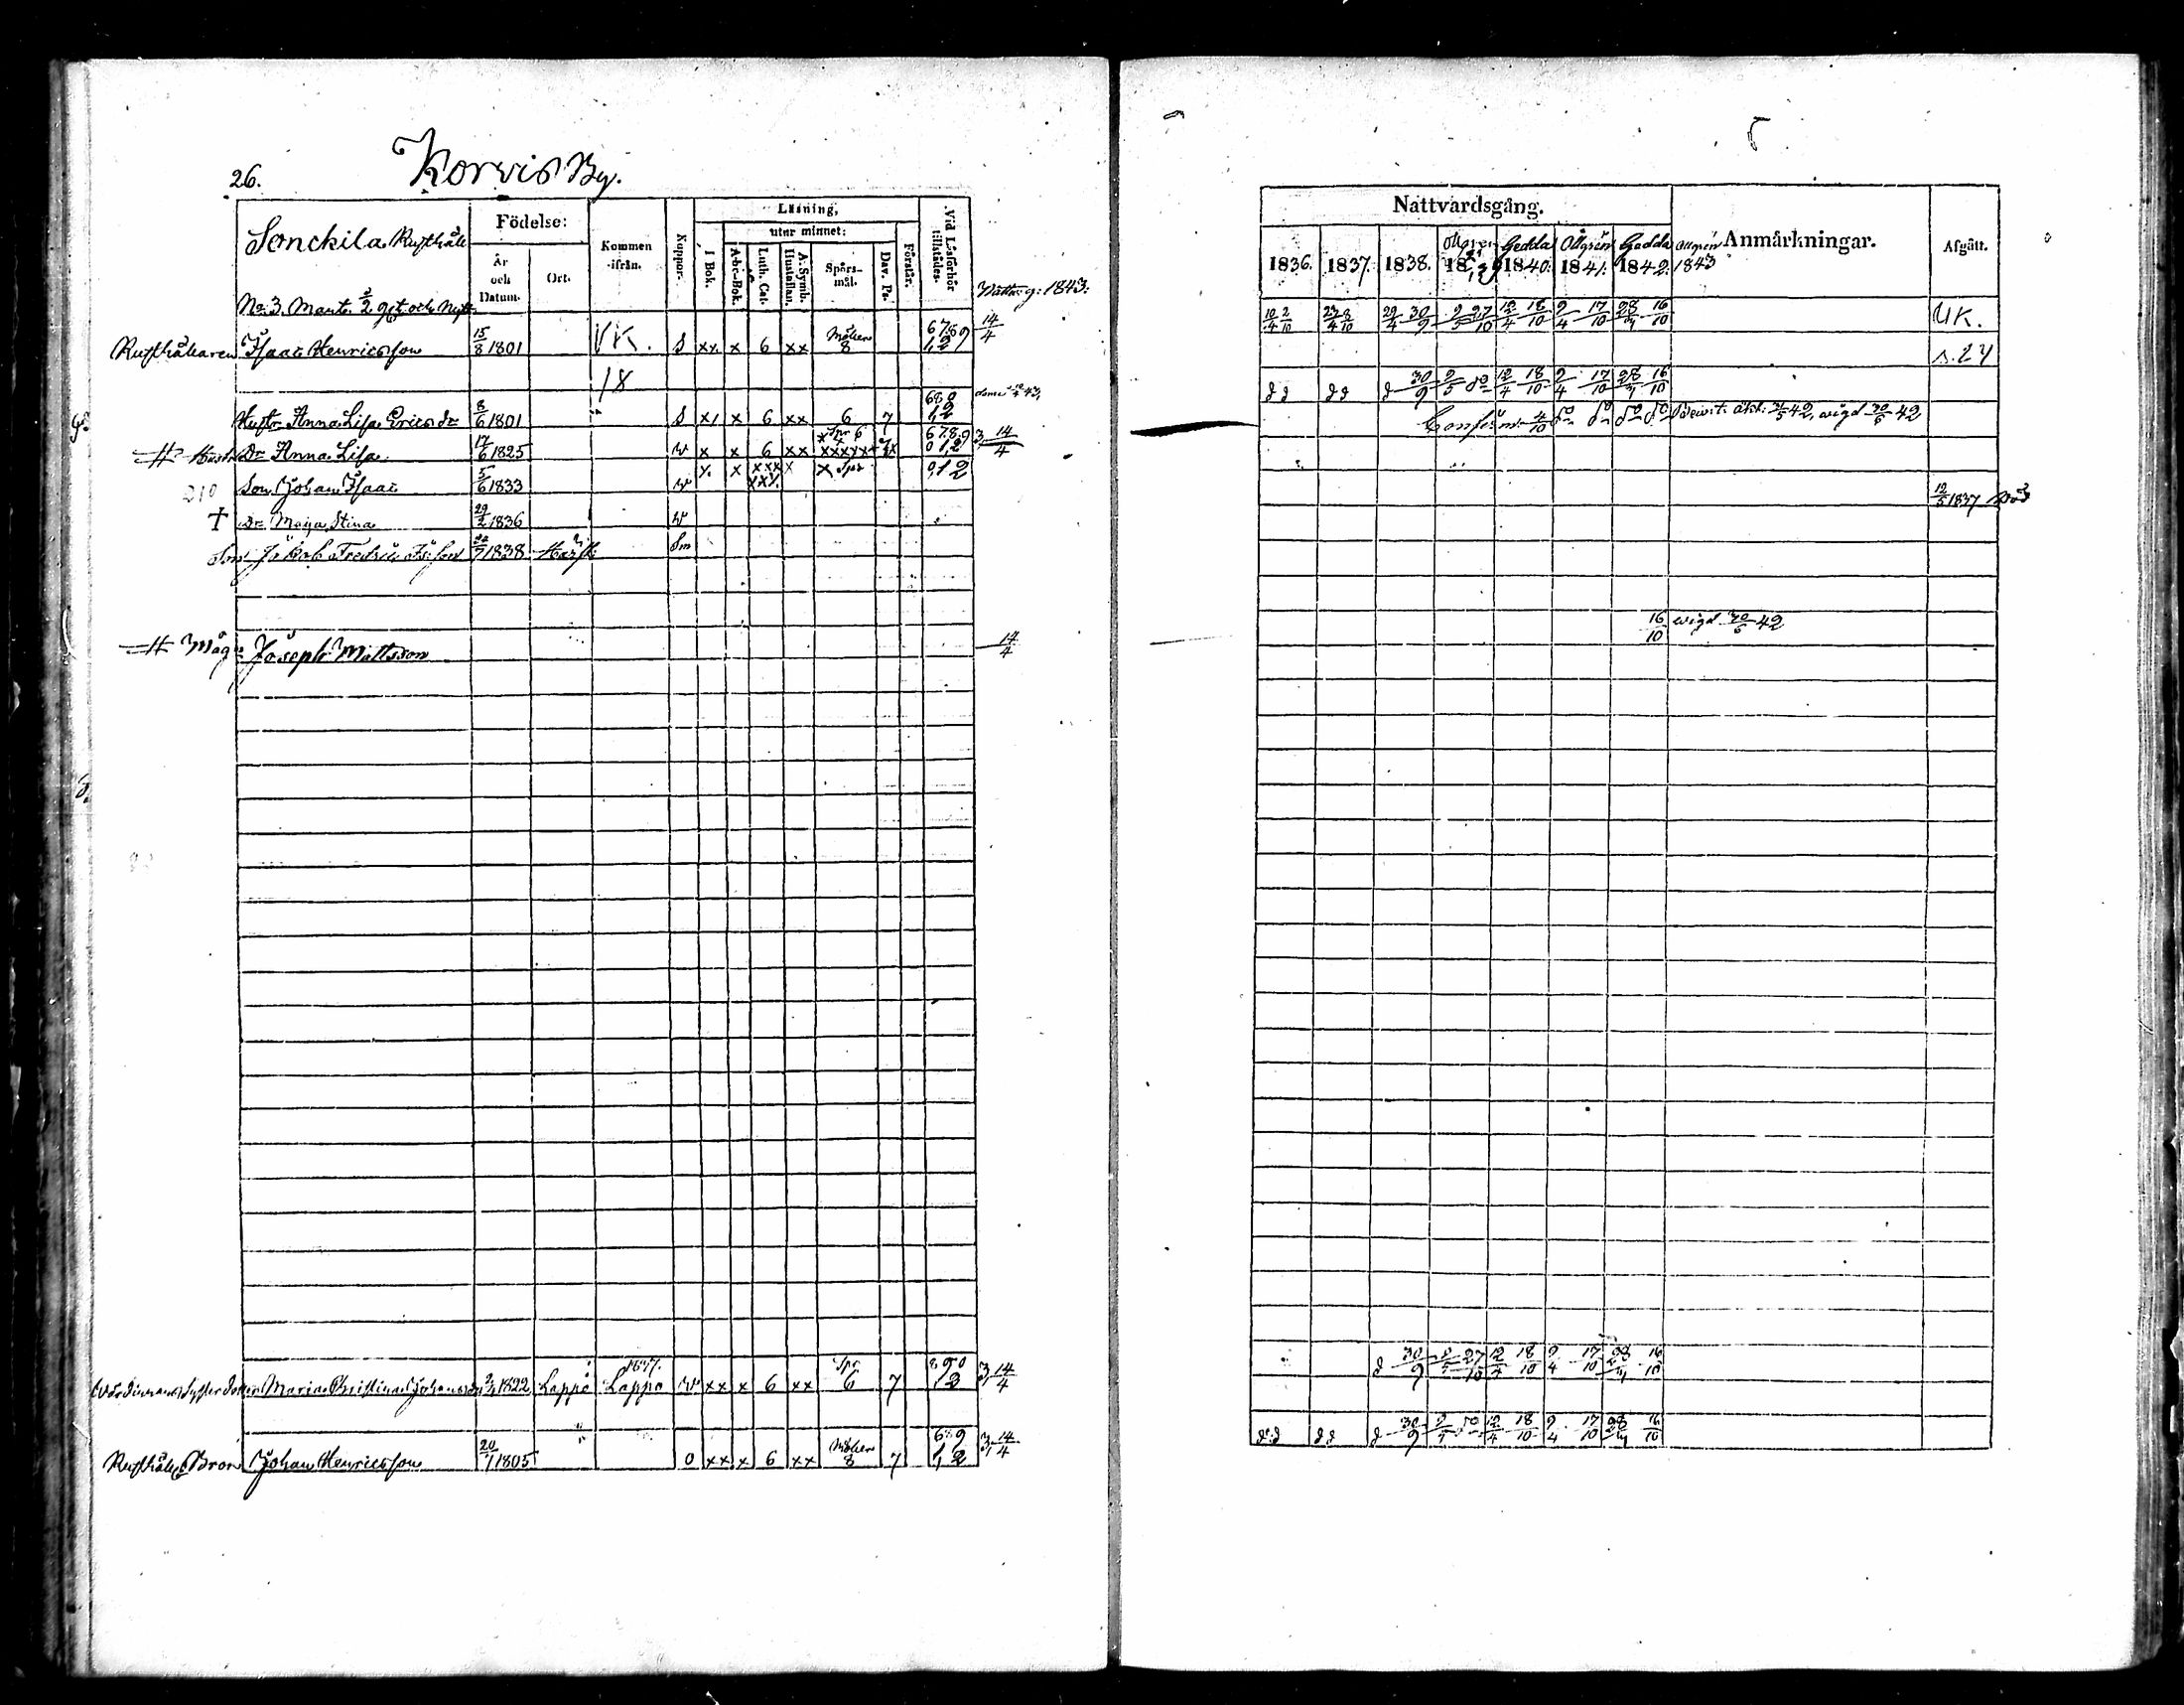 26.
Korvis By.
Sonckila Rusthåll
No 3. Mant.
Födelse:
År och Datum.
Ort.
Kommen ifrån.
Koppor.
Läsning,
I Bok.
utur minnet:
A-b-c-Bok.
Luth. Cat.
A. Symb. Hustaflan.
Spörsmål.
Dav. Ps.
Förstår.
Vid Läsförhör tillstädes.
Nattv. g: 1843:
Rusthållaren Isaac Henricsson 15/8 1801 UK. S xx x 6 xx Möller 8 14/4
18
Hustr. Anna Lisa Ericsdr 8/6 1801 S x x 6 xx 6 7
Dr Anna Lisa 17/6 1825 w x x 6 xx Spr 6 14/4
210 Son Johan Isaac 5/6 1833 w x x xxx x x Spr 0,12
† Dr Maija Stina 29/2 1836 w
Son Jakob Fredric 22/7 1838 Sm
Måg Joseph Mattsson 14/4
Wärdinnans Syster dotter Maria Christina Johansdr 1822 Lappo Lappo w xx x 6 xx Spr 6 7 890 13 3, 14/4
Rusthåll. Bror Johan Henricsson 20/7 1805 0 xx x 6 xx Möller 8 7 689 1,2 3, 14/4
Nattvardsgång.
1836. 1837. 1838. Ollgren 1839 Gedda 1840. Ollgren 1841. Gadda 1842. Ollgren 1843
Anmärkningar.
Afgått.
10/4 2/10 23/4 8/10 29/4 30/9 9/5 27/10 12/4 18/10 9/4 17/10 28/3 16/10 UK.
s. 24
30/9 9/5 do 12/4 18/10 9/4 17/10 28/3 16/10
Confirm. 4/10 do do do do 42, wigd 30/6 42
12/5 1837 död
16/10 wigd 30/6 42
30/9 9/5 27/10 12/4 18/10 9/4 17/10 28/3 16/10
30/9 9/5 do 12/4 18/10 9/4 17/10 28/3 16/10